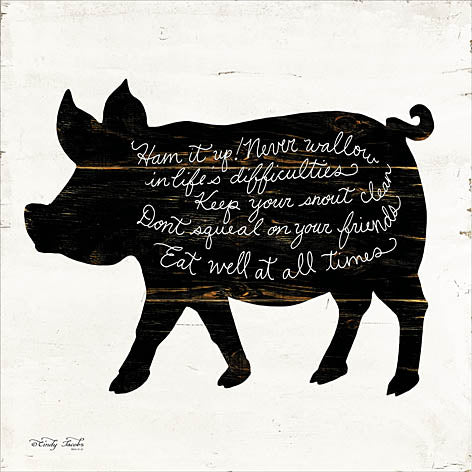 Ham it up! Never wallow
in life's difficulties
Keep your snout clean
Dont squeal on your friends
Eat well at all times
© Cindy Jacobs